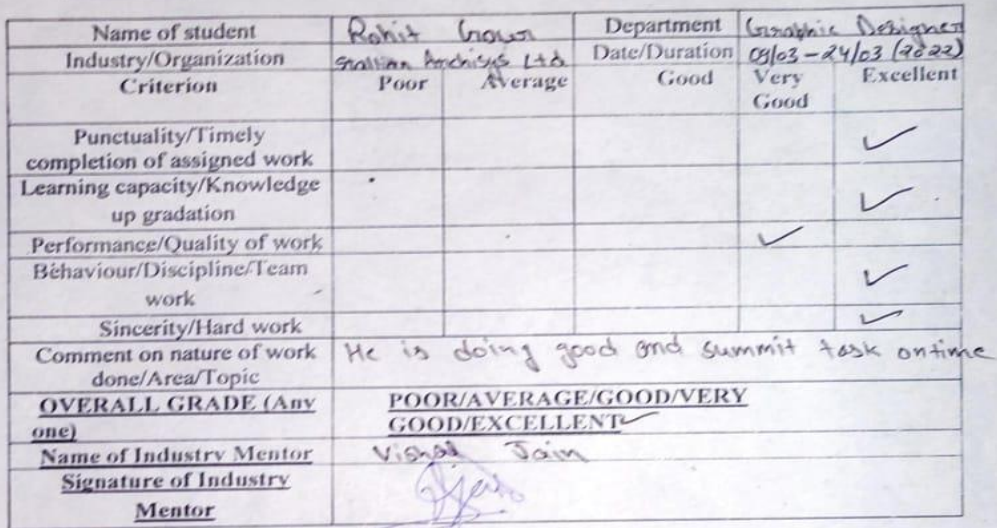 Name of student Rohit Gour Department Graphic Designer
Industry/Organization Archisys Ltd Date/Duration 09/03 – 24/03 (2022)
Criterion Poor Average Good Very Good Excellent
Punctuality/Timely
completion of assigned work ✓
Learning capacity/Knowledge
up gradation ✓
Performance/Quality of work ✓
Behaviour/Discipline/Team
work ✓
Sincerity/Hard work ✓
Comment on nature of work He is doing good and summit task ontime
done/Area/Topic
OVERALL GRADE (Any POOR/AVERAGE/GOOD/VERY
one) GOOD/EXCELLENT ✓
Name of Industry Mentor Vishal Jain
Signature of Industry
Mentor